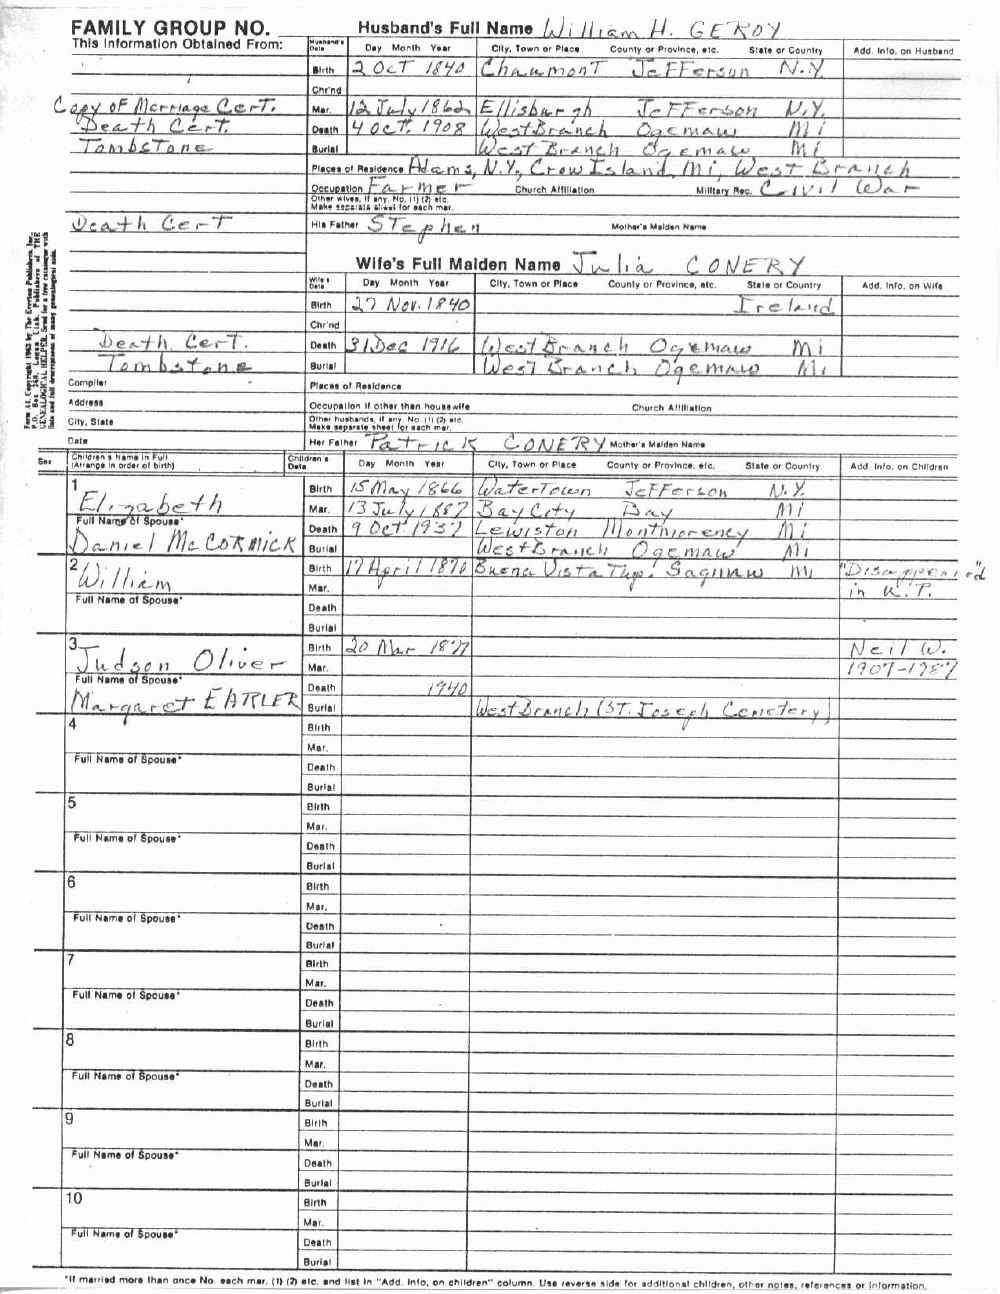 FAMILY GROUP NO. Husband's Full Name William H. GEROY
This Information Obtained From: Husband's Data Day Month Year City, Town or Place County or Province, etc. State or Country Add. Info. on Husband
Birth 2 OCT 1840 Chaumont Jefferson N.Y.
Chr'nd
Copy of Marriage Cert. Mar. 12 July 1862 Ellisburgh Jefferson N.Y.
Death Cert. Death 4 Oct. 1908 West Branch Ogemaw Mi
Tombstone Burial West Branch Ogemaw Mi
Places of Residence Adams, N.Y., Crow Island, Mi, West Branch
Occupation Farmer Church Affiliation Military Rec. Civil War
Other wives, if any. No. (1) (2) etc.
Make separate sheet for each mar.
Death Cert His Father Stephen Mother's Maiden Name
Wife's Full Maiden Name Julia CONERY
Wife's Data Day Month Year City, Town or Place County or Province, etc. State or Country Add. Info. on Wife
Birth 27 Nov. 1840 Ireland
Chr'nd
Death Cert. Death 31 Dec 1916 West Branch Ogemaw Mi
Tombstone Burial West Branch Ogemaw Mi
Compiler Places of Residence
Address Occupation if other than housewife Church Affiliation
City, State Other husbands, if any. No. (1) (2) etc.
Make separate sheet for each mar.
Date Her Father Patrick CONERY Mother's Maiden Name
Form A1. Copyright 1962 by The Everton Publishers, Inc.
Sex Children's Name in Full
(Arrange in order of birth) Children's Data Day Month Year City, Town or Place County or Province, etc. State or Country Add. Info. on Children
1 Birth 15 May 1866 Watertown Jefferson N.Y.
Elizabeth Mar. 13 July 1887 Bay City Bay Mi
Full Name of Spouse* Death 9 Oct 1937 Lewiston Montmorency Mi
Daniel McCORMICK Burial West Branch Ogemaw Mi
2 Birth 17 April 1870 Buena Vista Twp. Saginaw Mi "Disappeared"
William Mar. in K.P.
Full Name of Spouse*
Death
Burial
3 Birth 20 Mar 1877 Neil W.
Judson Oliver Mar. 1907-1987
Full Name of Spouse* Death 1940
Margaret EATRLER Burial West Branch (ST. Joseph Cemetery)
4 Birth
Mar.
Full Name of Spouse*
Death
Burial
5 Birth
Mar.
Full Name of Spouse*
Death
Burial
6 Birth
Mar.
Full Name of Spouse*
Death
Burial
7 Birth
Mar.
Full Name of Spouse*
Death
Burial
8 Birth
Mar.
Full Name of Spouse*
Death
Burial
9 Birth
Mar.
Full Name of Spouse*
Death
Burial
10 Birth
Mar.
Full Name of Spouse*
Death
Burial
*If married more than once No. each mar. (1) (2) etc. and list in "Add. info, on children" column. Use reverse side for additional children, other notes, references or information.